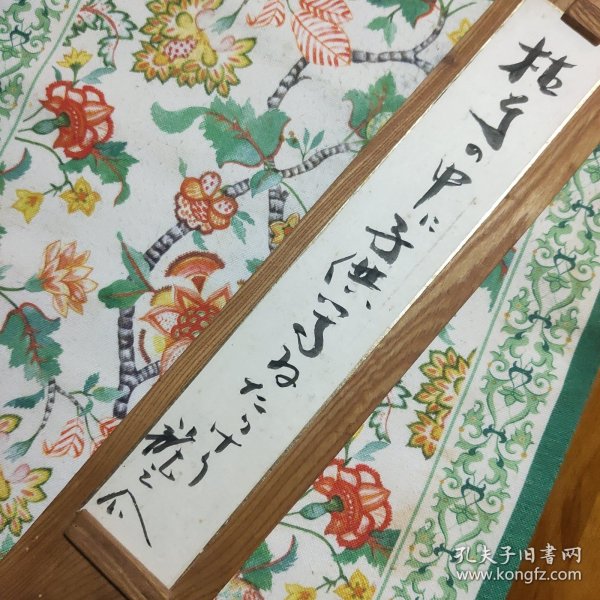 枯の中に子供ねたりけり
龍之介
孔夫子旧書网
www.kongfz.com